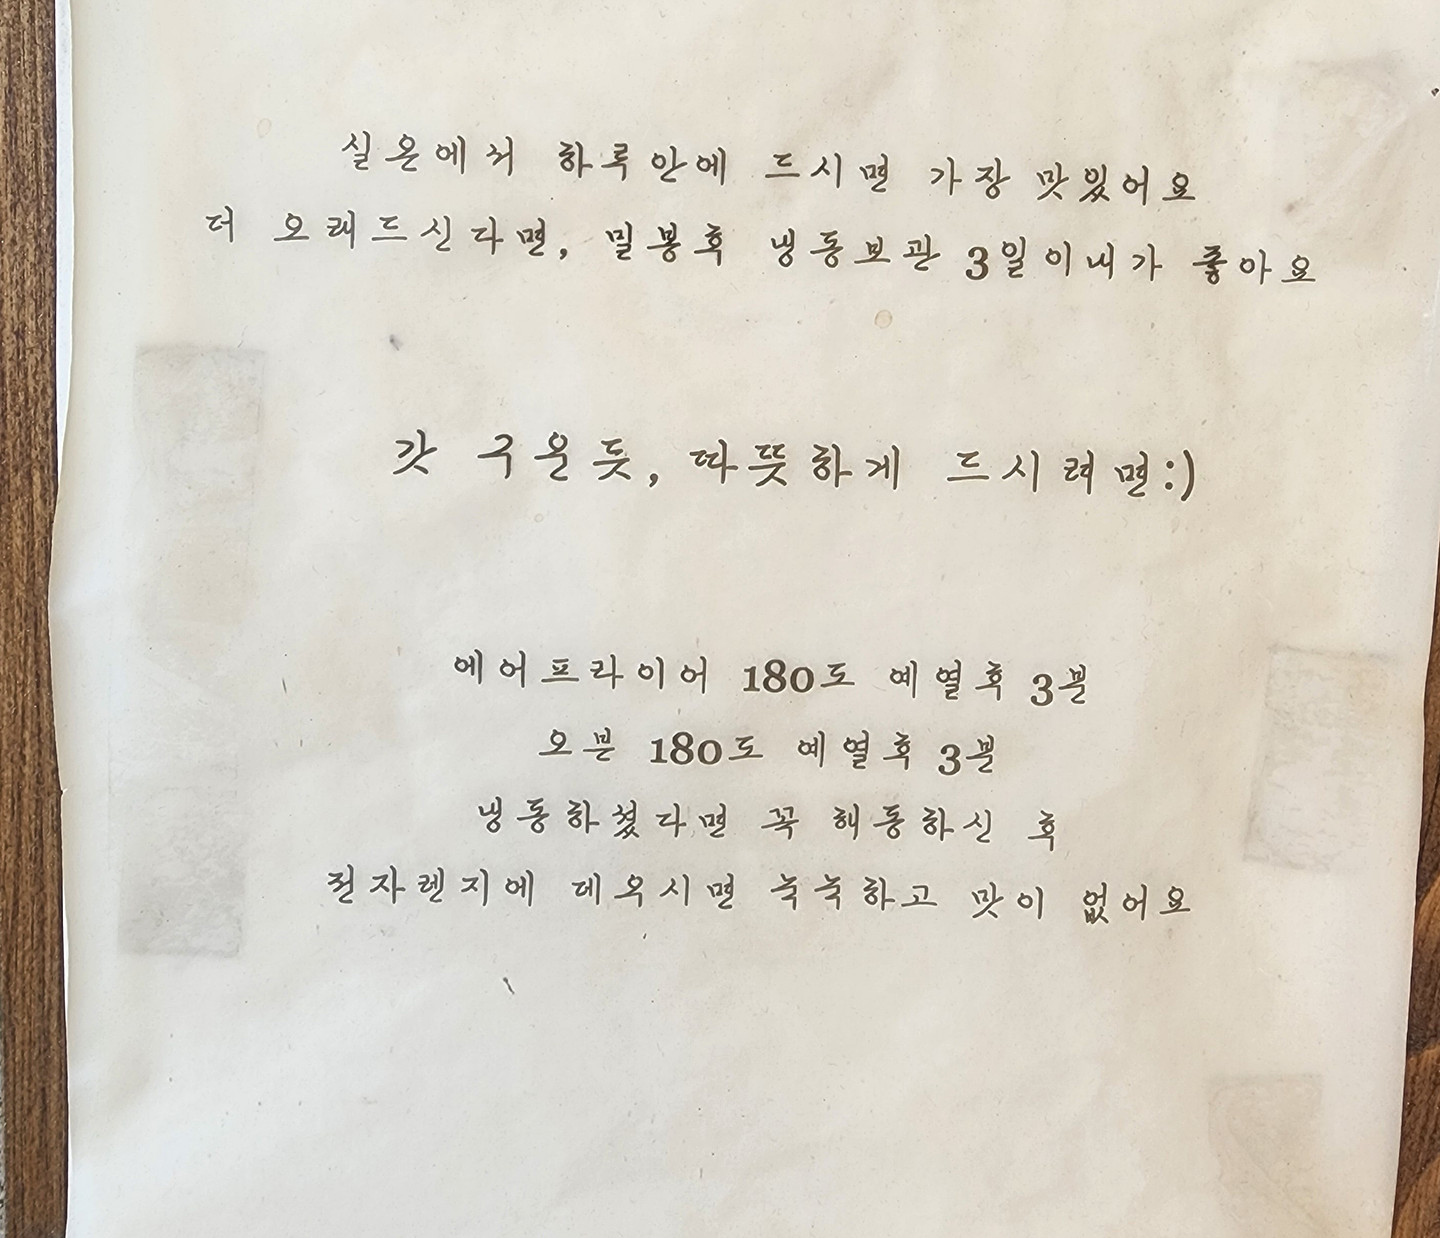 실온에서 하루안에 드시면 가장 맛있어요
더 오래드신다면, 밀봉후 냉동보관 3일이내가 좋아요
갓 구운듯, 따뜻하게 드시려면:)
에어프라이어 180도 예열후 3분
오븐 180도 예열후 3분
냉동하셨다면 꼭 해동하신 후
전자렌지에 데우시면 눅눅하고 맛이 없어요